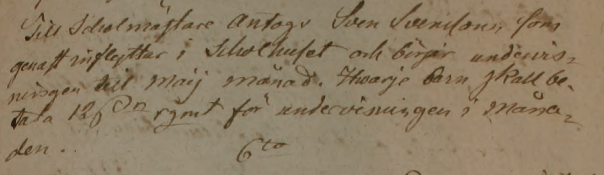 Till Scholmästare Antogs Sven Svensson, som
genast inflyttar i Scholhuset och börjar undervis-
ningen till Maij månad. Hwarje barn skall be-
tala 12 rgmt för undervisningen i Måna-
den.
6to